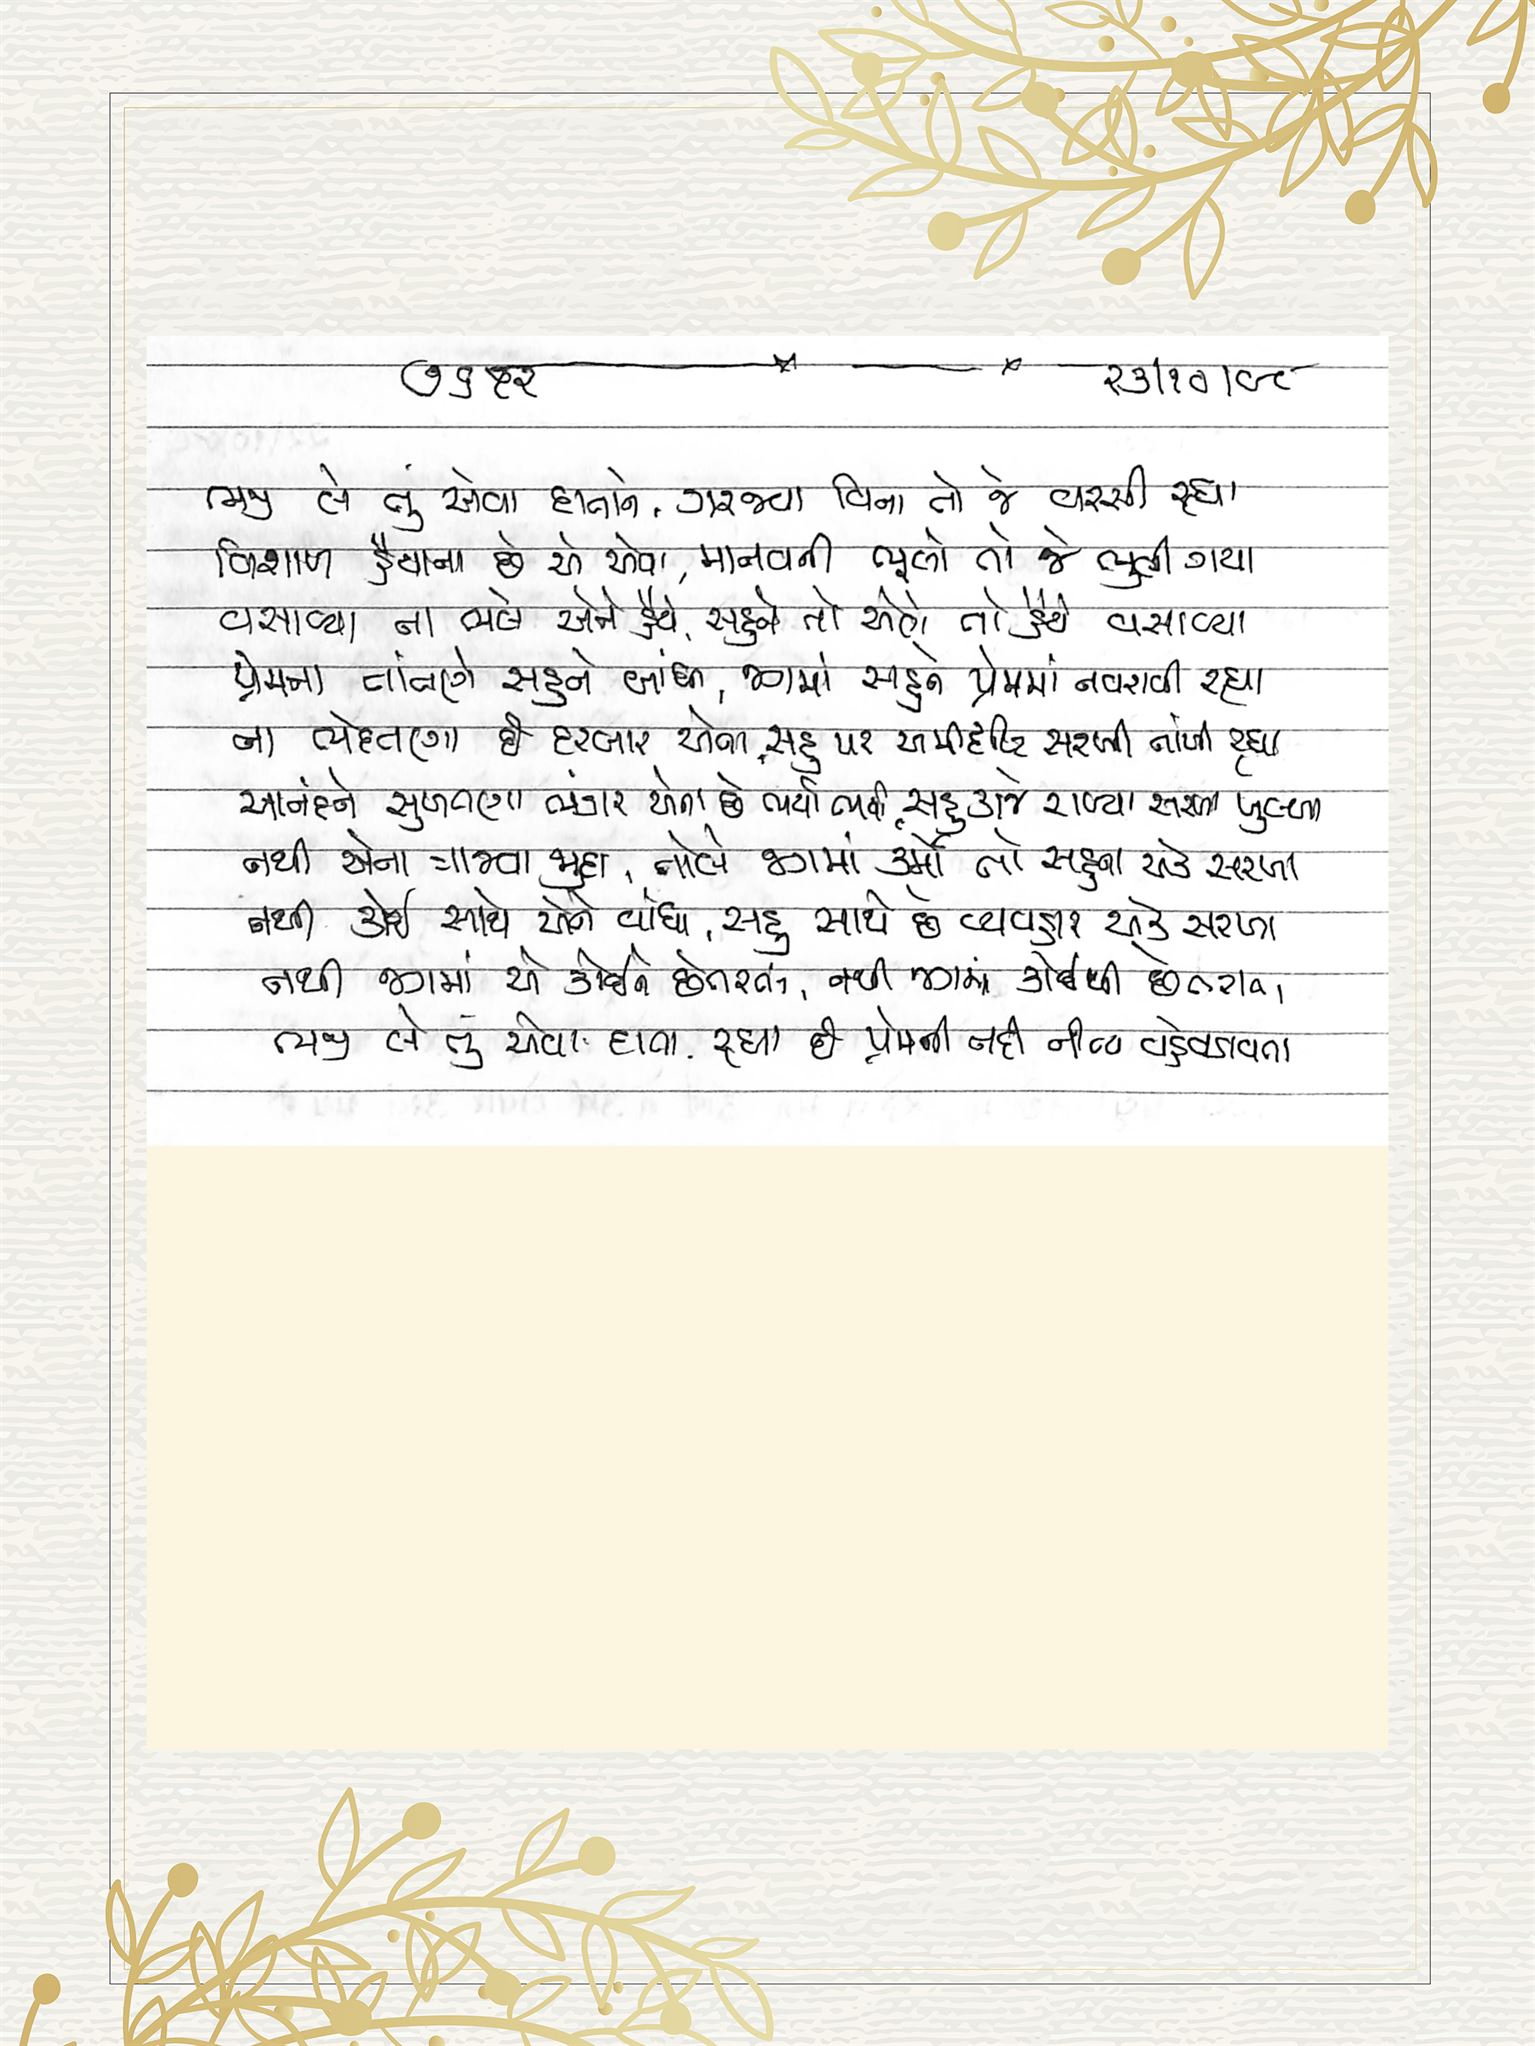 ૭૬૪૨ ૨૩/૧૦/૯૮
ભજી લે તું એવા દાતાને, ગરજ્યા વિના તો જે વરસી રહ્યા
વિશાળ હૈયાના છે એ એવા, માનવની ભૂલો તો જે ભુલી ગયા
વસાવ્યા ના ભલે એને હૈયે, સહુને તો એણે તો હૈયે વસાવ્યા
પ્રેમના તાંતણે સહુને બાંધી, જગમાં સહુને પ્રેમમાં નવરાવી રહ્યા
ના ભેદતણો છે દરબાર એનો, સહુ પર અમીદૃષ્ટિ સરખી નાંખી રહ્યા
આનંદને સુખતણા ભંડાર એના છે ભર્યા ભર્યા, સહુ કાજે રાખ્યા સરખા ખુલ્લા
નથી એના ત્રાજવા જુદા, તોલે જગમાં કર્મો તો સહુના એકસરખા
નથી કોઈ સાથે એને વાંધા, સહુ સાથે છે વ્યવહાર એક સરખા
નથી જગમાં એ કોઈને છેતરતાં, નથી જગમાં કોઈથી છેતરાતા
ભજી લે તું એવા દાતા, રહ્યા છે પ્રેમની નદી નીત્ય વહેવડાવતા